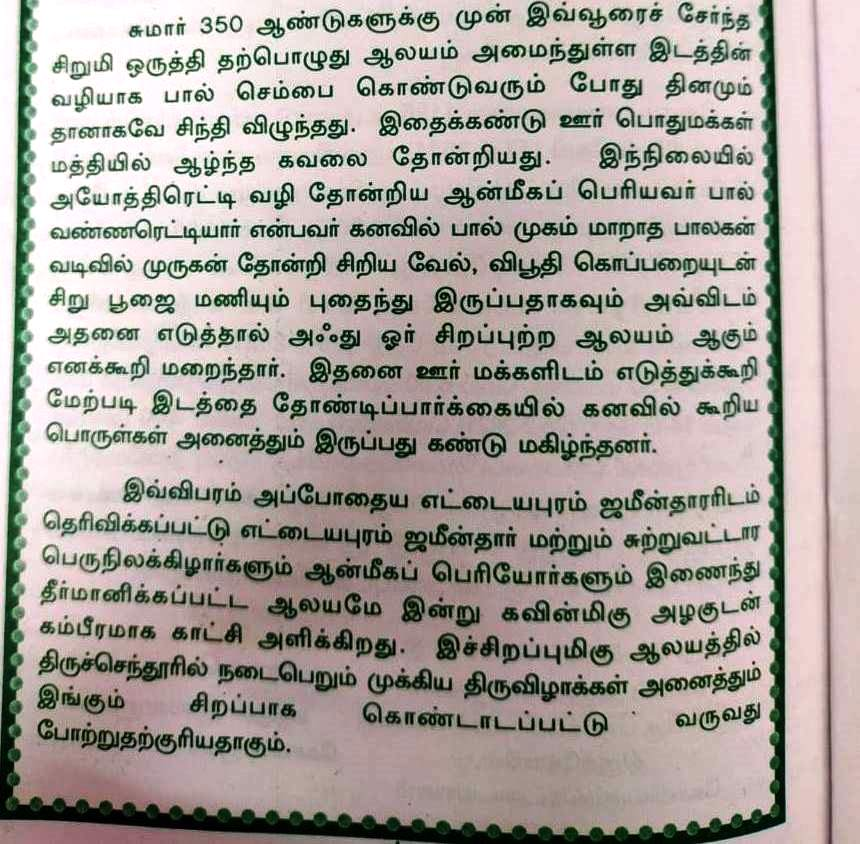 சுமார் 350 ஆண்டுகளுக்கு முன் இவ்வூரைச் சேர்ந்த
சிறுமி ஒருத்தி தற்பொழுது ஆலயம் அமைந்துள்ள இடத்தின்
வழியாக பால் செம்பை கொண்டுவரும் போது தினமும்
தானாகவே சிந்தி விழுந்தது. இதைக்கண்டு ஊர் பொதுமக்கள்
மத்தியில் ஆழ்ந்த கவலை தோன்றியது. இந்நிலையில்
அயோத்திரெட்டி வழி தோன்றிய ஆன்மீகப் பெரியவர் பால்
வண்ணரெட்டியார் என்பவர் கனவில் பால் முகம் மாறாத பாலகன்
வடிவில் முருகன் தோன்றி சிறிய வேல், விபூதி கொப்பறையுடன்
சிறு பூஜை மணியும் புதைந்து இருப்பதாகவும் அவ்விடம்
அதனை எடுத்தால் அஃது ஓர் சிறப்புற்ற ஆலயம் ஆகும்
எனக்கூறி மறைந்தார். இதனை ஊர் மக்களிடம் எடுத்துக்கூறி
மேற்படி இடத்தை தோண்டிப்பார்க்கையில் கனவில் கூறிய
பொருள்கள் அனைத்தும் இருப்பது கண்டு மகிழ்ந்தனர்.
இவ்விபரம் அப்போதைய எட்டையபுரம் ஜமீன்தாரரிடம்
தெரிவிக்கப்பட்டு எட்டையபுரம் ஜமீன்தார் மற்றும் சுற்றுவட்டார
பெருநிலக்கிழார்களும் ஆன்மீகப் பெரியோர்களும் இணைந்து
தீர்மானிக்கப்பட்ட ஆலயமே இன்று கவின்மிகு அழகுடன்
கம்பீரமாக காட்சி அளிக்கிறது. இச்சிறப்புமிகு ஆலயத்தில்
திருச்செந்தூரில் நடைபெறும் முக்கிய திருவிழாக்கள் அனைத்தும்
இங்கும் சிறப்பாக கொண்டாடப்பட்டு வருவது
போற்றுதற்குரியதாகும்.